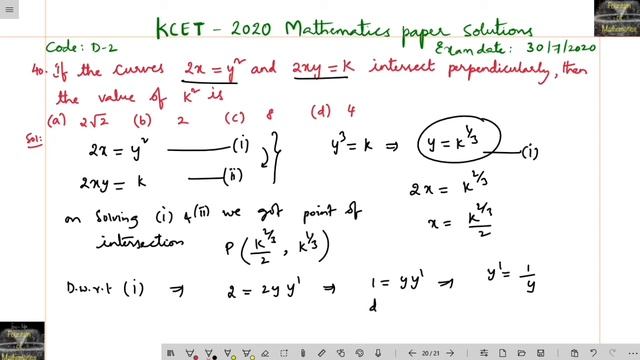 KCET - 2020 Mathematics paper solutions
Code: D-2
Exam date: 30/7/2020
40. If the curves 2x = y² and 2xy = K intersect perpendicularly, then
the value of K² is
(a) 2√2 (b) 2 (c) 8 (d) 4
Sol:
2x = y² (i)
2xy = K (ii)
y³ = k ⇒ y = k^1/3 (i)
2x = k^2/3
x = k^2/3 / 2
on solving (i) & (ii) we got point of
intersection P (k^2/3 / 2, k^1/3)
D.w.r.t (i) ⇒ 2 = 2y y' ⇒ 1 = yy' ⇒ y' = 1/y
d
20 / 21